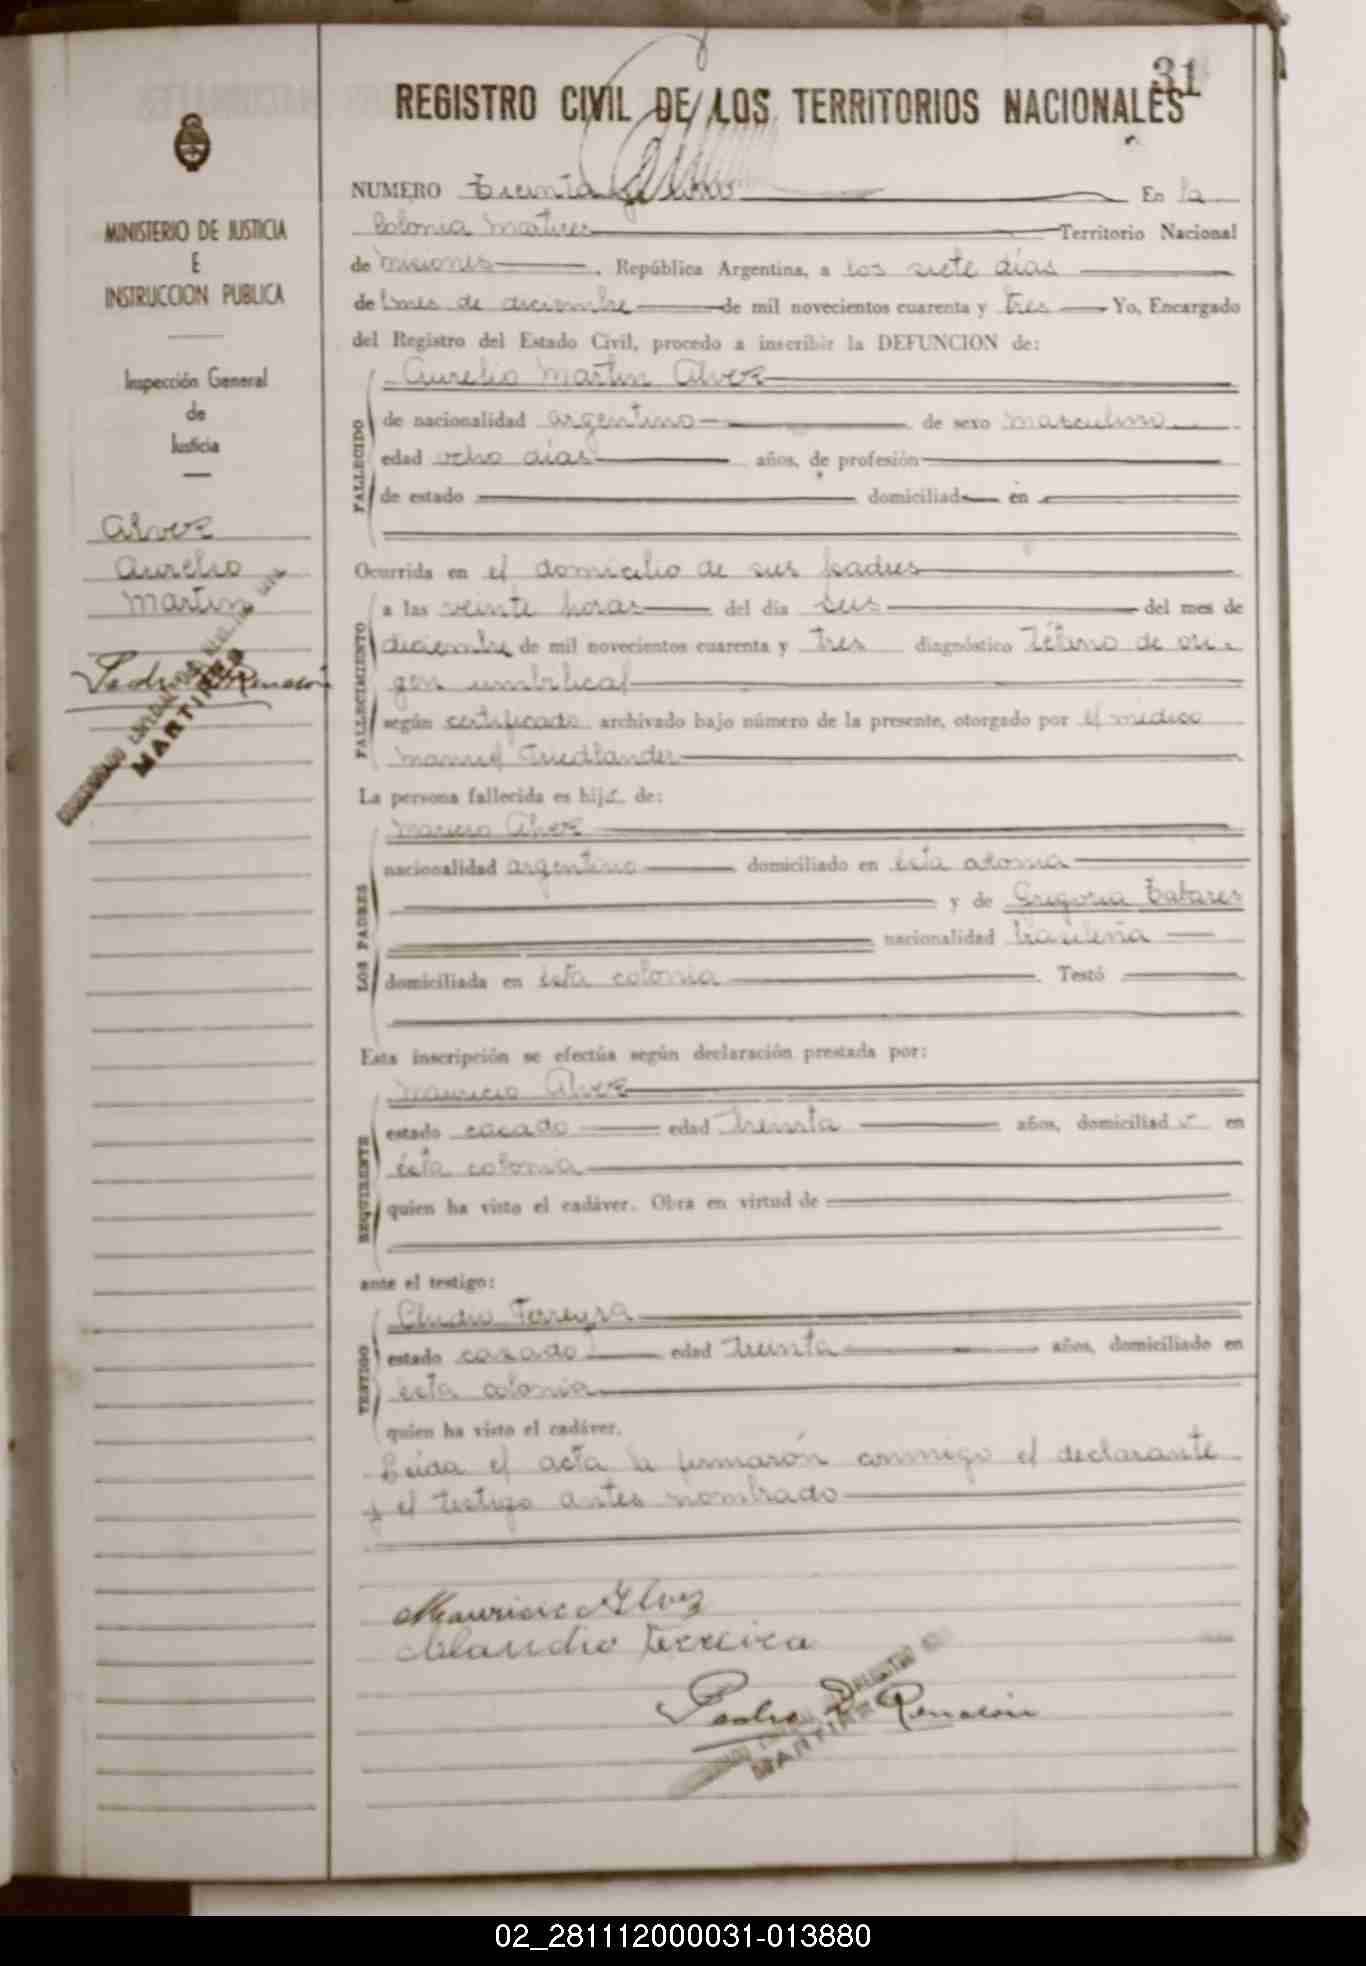 31
REGISTRO CIVIL DE LOS TERRITORIOS NACIONALES
MINISTERIO DE JUSTICIA
E
INSTRUCCION PUBLICA
Inspección General
de
Justicia
Alvez
Aurelio
Martin
Pedro Renacin
MARTIRES
NUMERO Treinta y uno En la
Colonia Martires Territorio Nacional
de Misiones, República Argentina, a los siete días
del mes de diciembre de mil novecientos cuarenta y tres Yo, Encargado
del Registro del Estado Civil, procedo a inscribir la DEFUNCION de:
FALLECIDO
Aurelio Martin Alvez
de nacionalidad argentino de sexo masculino
edad ocho días años, de profesión
de estado domiciliad en
Ocurrida en el domicilio de sus padres
FALLECIMIENTO
a las veinte horas del día seis del mes de
diciembre de mil novecientos cuarenta y tres diagnóstico Tétano de ori-
gen umbilical
según certificado archivado bajo número de la presente, otorgado por el médico
Manuel Friedlander
La persona fallecida es hijo de:
LOS PADRES
Mauricio Alvez
nacionalidad argentino domiciliado en esta colonia
y de Gregoria Tabares
nacionalidad brasileña
domiciliada en esta colonia. Testó
Esta inscripción se efectúa según declaración prestada por:
REQUIRENTE
Mauricio Alvez
estado casado edad treinta años, domiciliado en
ésta colonia
quien ha visto el cadáver. Obra en virtud de
ante el testigo:
TESTIGO
Cludio Ferreyra
estado casado edad treinta años, domiciliado en
esta colonia
quien ha visto el cadáver.
Leida el acta la firmarón conmigo el declarante
y el testigo antes nombrado
Mauricio Alvez
Claudio Ferreira
Pedro Renacin
MARTIRES
02_281112000031-013880